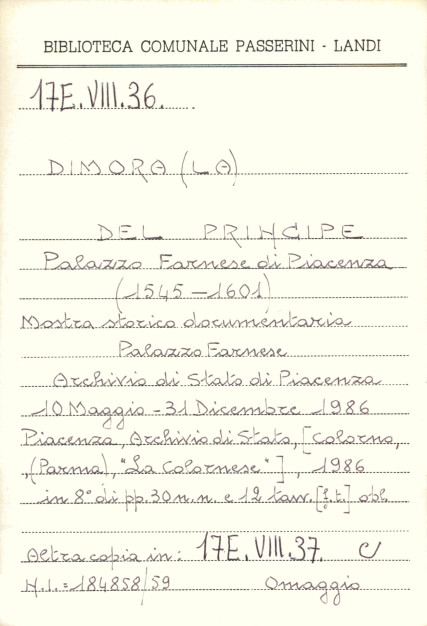 BIBLIOTECA COMUNALE PASSERINI - LANDI
17E.VIII.36.
DIMORA (LA)
DEL PRINCIPE
Palazzo Farnese di Piacenza
(1545-1601)
Mostra storico documentaria
Palazzo Farnese
Archivio di Stato di Piacenza
10 Maggio - 31 Dicembre 1986
Piacenza, Archivio di Stato, [Colorno,
(Parma), "La Colornese"], 1986
in 8° di pp. 30 n.n. e 12 tavv. [f.t.] obl.
Altra copia in: 17E.VIII.37.
N.I. = 184858/59 Omaggio